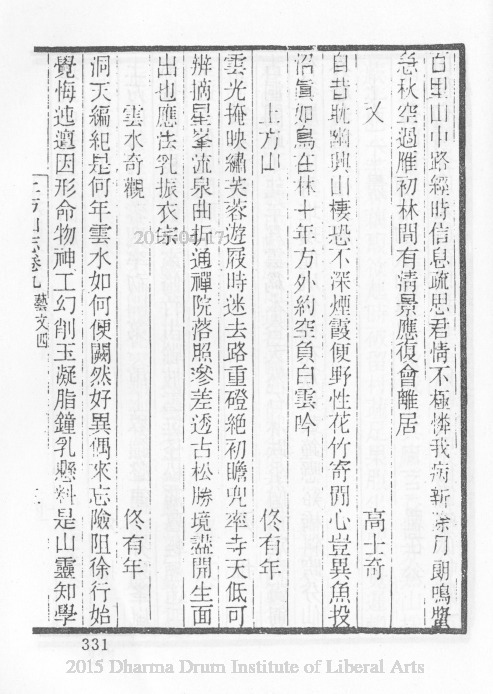 百里山中路經時信息疏思君情不極憐我病新除月朗鳴蛩
急秋空過雁初林間有清景應復會離居
又
高士奇
自昔耽幽興山棲恐不深煙霞便野性花竹寄閒心豈異魚投
沼真如鳥在林十年方外約空負白雲吟
上方山
佟有年
雲光掩映繡芙蓉遊屐時迷去路重磴絕初瞻兜率寺天低可
辨摘星峯流泉曲折通禪院落照滲差透古松勝境盡開生面
出也應法乳振衣宗
雲水奇觀
佟有年
洞天編紀是何年雲水如何便闕然好異偶來忘險阻徐行始
覺悔迍邅因形命物神工幻削玉凝脂鐘乳懸料是山靈知學
上方山志卷九
藝文四
三
331
2015 Dharma Drum Institute of Liberal Arts